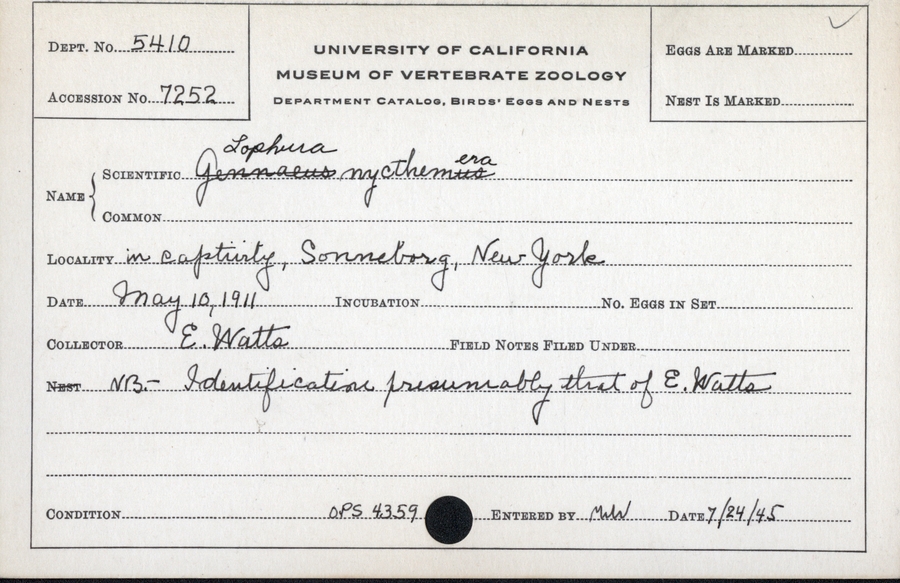 DEPT. No. 5410
ACCESSION No. 7252
UNIVERSITY OF CALIFORNIA
MUSEUM OF VERTEBRATE ZOOLOGY
DEPARTMENT CATALOG, BIRDS' EGGS AND NESTS
EGGS ARE MARKED
NEST IS MARKED
Lophura
NAME { SCIENTIFIC Gennaeus nycthemus era
COMMON
LOCALITY in captivity, Sonneborg, New York
DATE May 10, 1911 INCUBATION No. EGGS IN SET
COLLECTOR E. Watts FIELD NOTES FILED UNDER
NEST NB.- Identification presumably that of E. Watts
CONDITION OPS 4359 ENTERED BY MW DATE 7/24/45